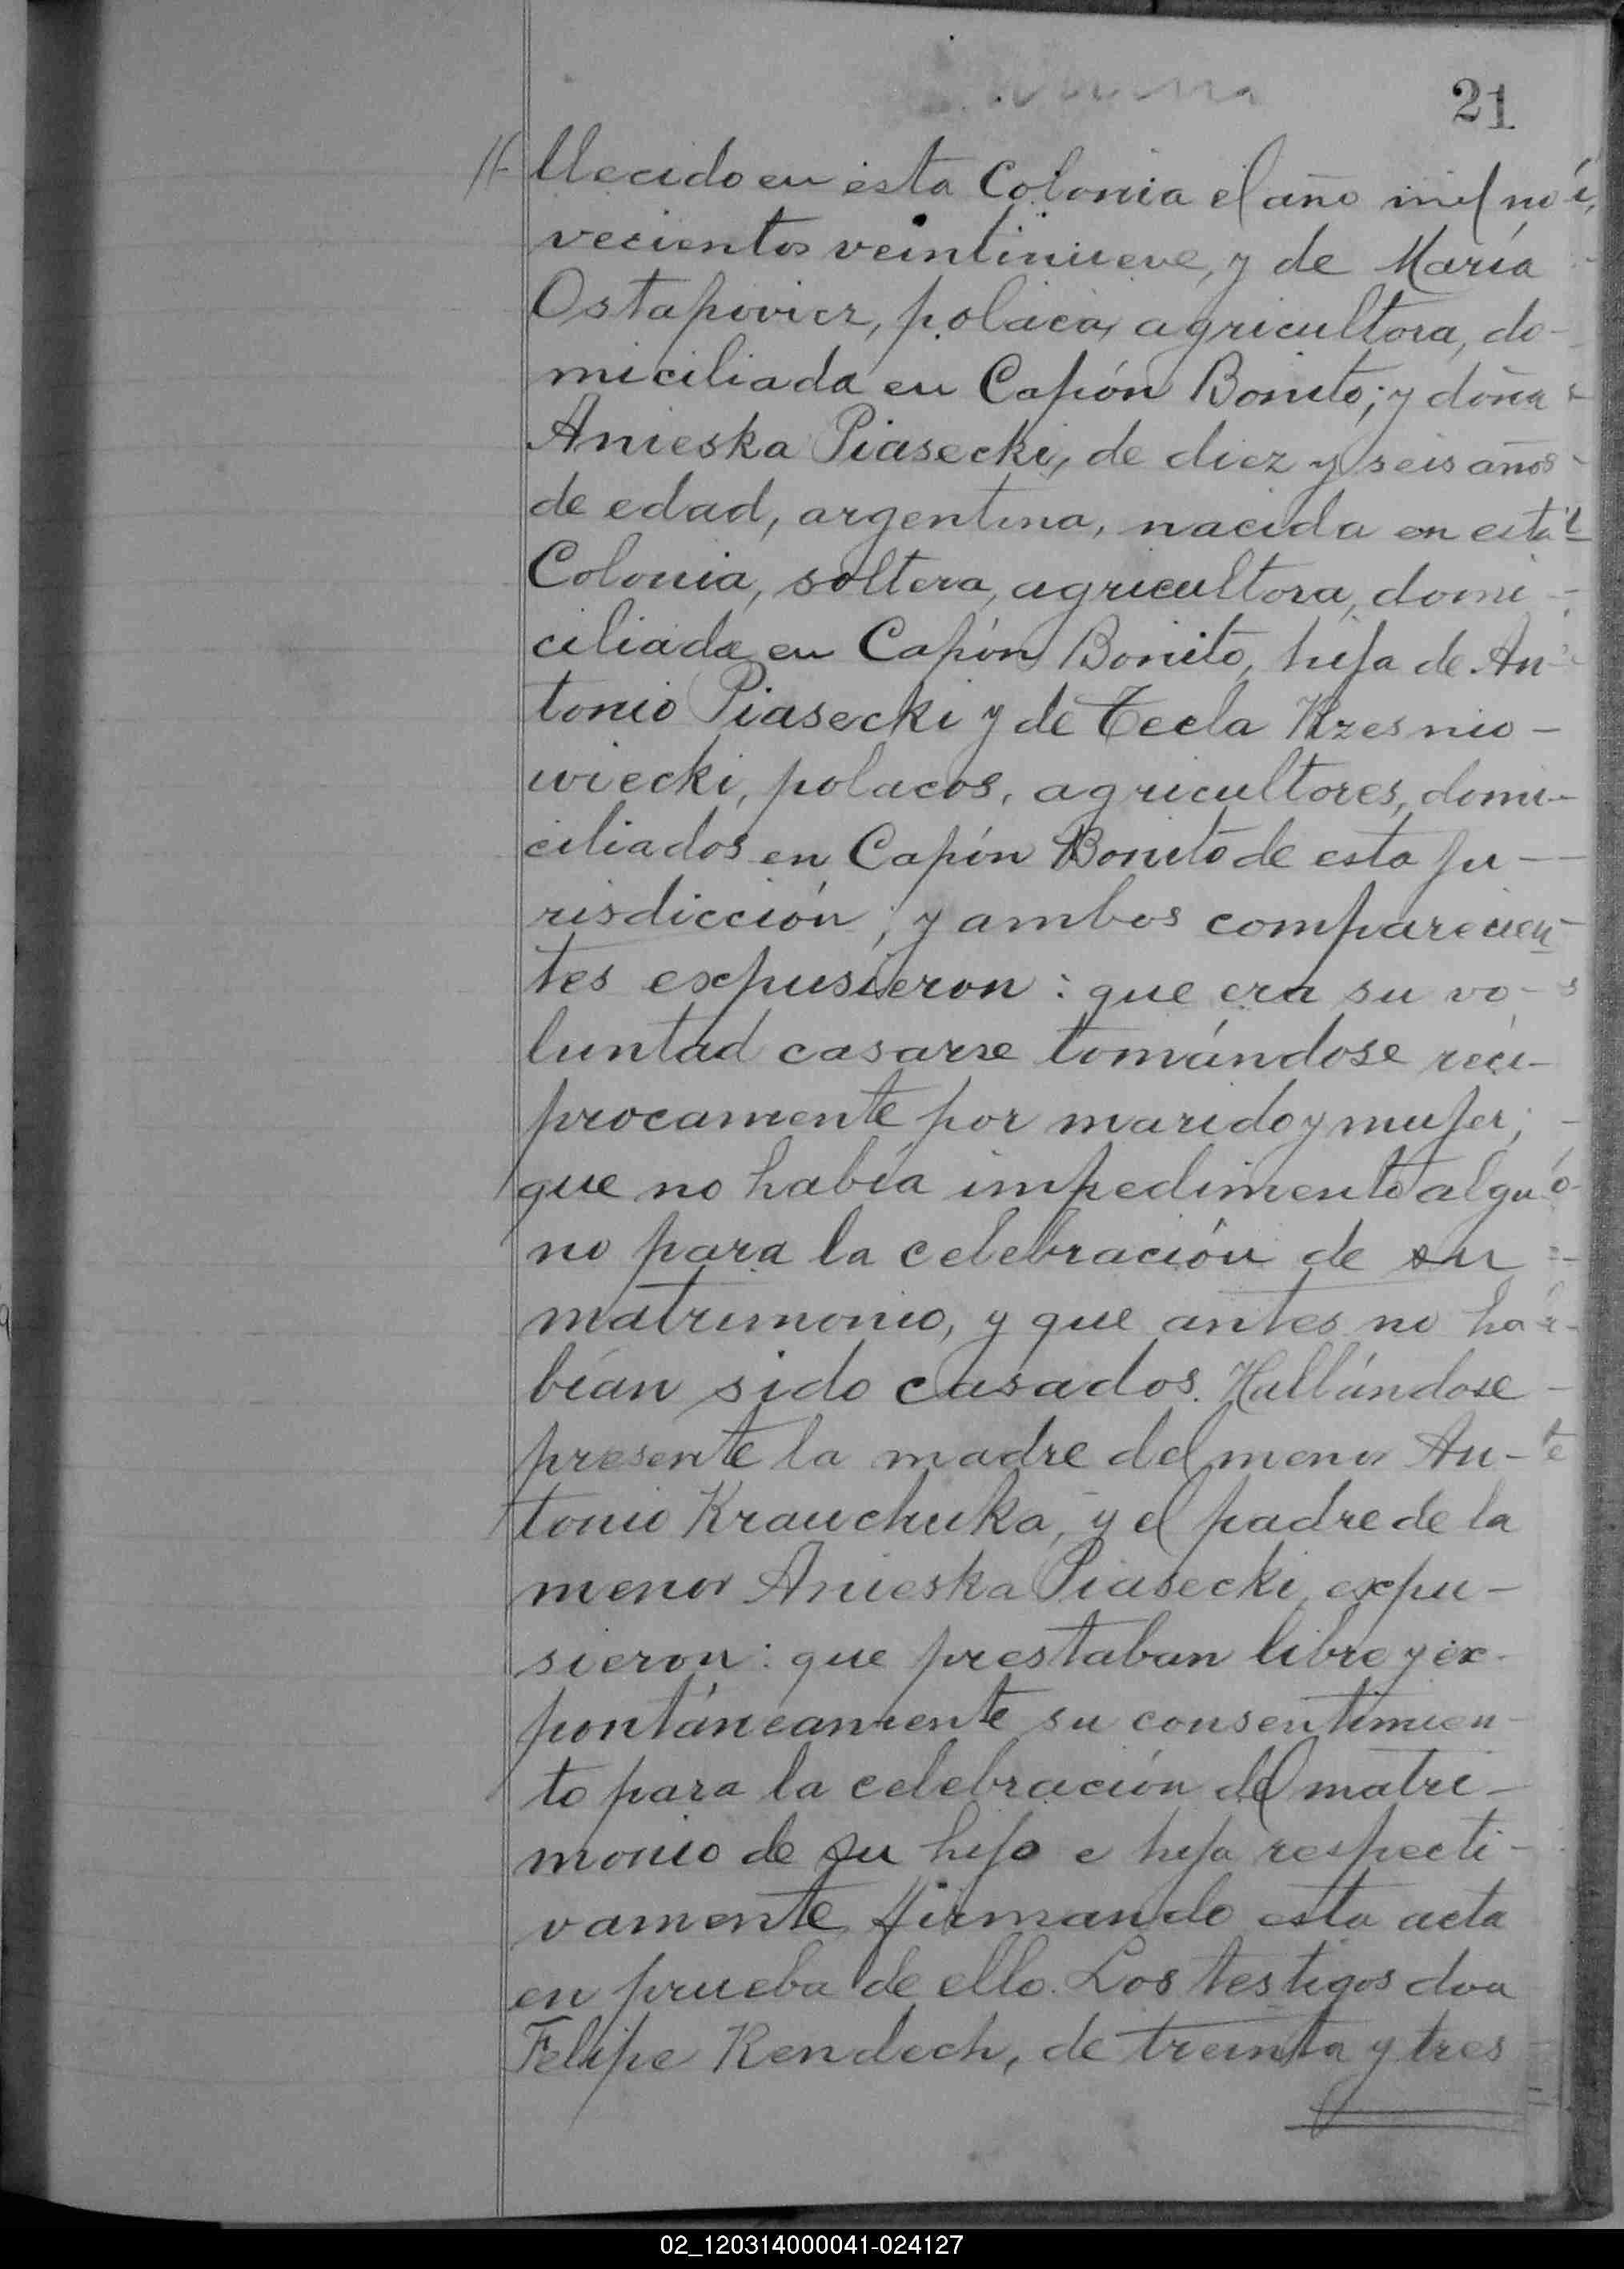 21
// llecido en esta Colonia el año mil no
vecientos veintinueve, y de María
Ostapovicz, polaca, agricultora, do-
miciliada en Capón Bonito; y doña
Anieska Piasecki, de diez y seis años
de edad, argentina, nacida en esta
Colonia, soltera, agricultora, domi-
ciliada en Capón Bonito, hija de An-
tonio Piasecki y de Tecla Krzesnio-
wiecki, polacos, agricultores, domi-
ciliados en Capón Bonito de esta ju-
risdicción; y ambos comparecien-
tes expusieron: que era su vo-
luntad casarse tomándose recí-
procamente por marido y mujer;
que no había impedimento algu-
no para la celebración de su
matrimonio, y que antes no ha-
bían sido casados. Hallándose
presente la madre del menor An-
tonio Krauchuka, y el padre de la
menor Anieska Piasecki, expu-
sieron: que prestaban libre y ex-
pontáneamente su consentimien-
to para la celebración del matri-
monio de su hijo e hija respecti-
vamente, firmando esta acta
en prueba de ello. Los testigos don
Felipe Rendech, de treinta y tres
02_120314000041-024127